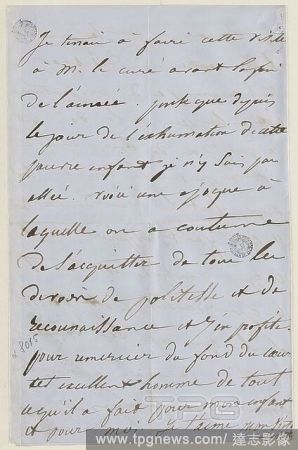 Je tenais à faire cette visite
à M. le curé avant la fin
de l'année. puisque depuis
le jour de l'exhumation de cette
pauvre enfant je n'y suis pas
allée. voici une époque à
laquelle on a coutume
de s'acquitter de tous les
devoirs de politesse et de
reconnaissance et j'en profite
pour remercier du fond du cœur
cet excellent homme de tout
ce qu'il a fait pour mon enfant
et pour moi. J'aime
8085
TPG
www.tpgnews.com / 達志影像